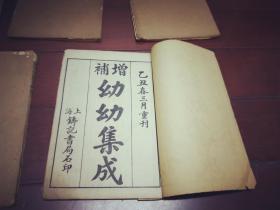 乙丑春三月重刊
增補
幼幼集成
上海
鑄記書局石印